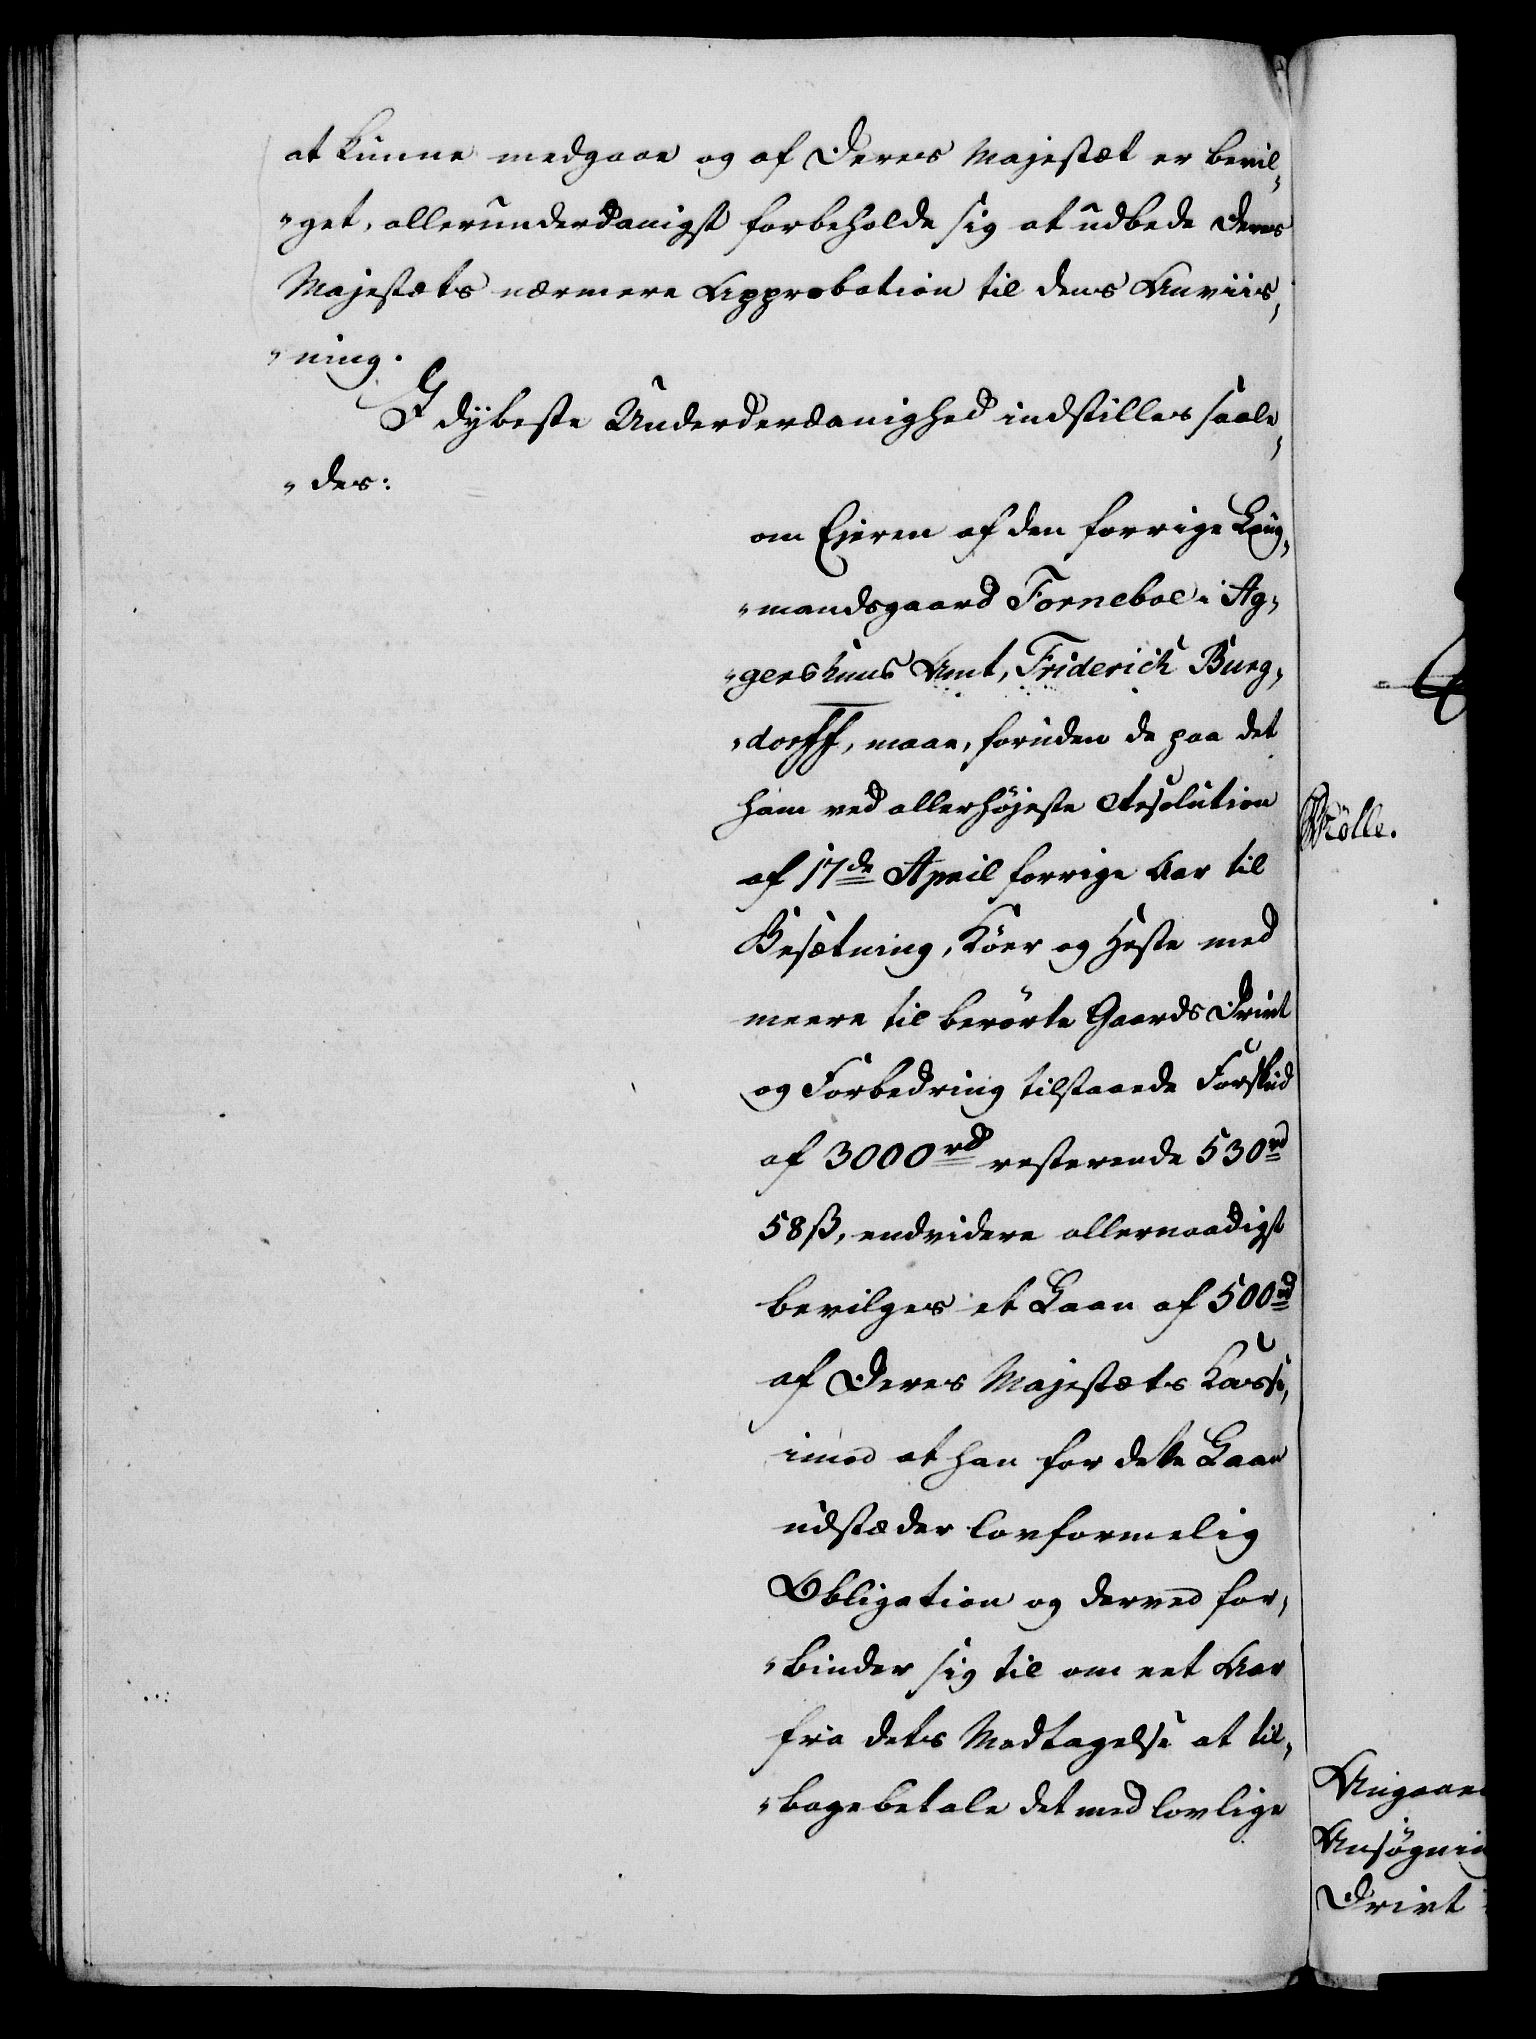 at kunne medgaae og af Deres Majestæt er bevil„
„get, allerunderdanigst forbeholde sig at udbede Deres
Majestæts nærmere Approbation til dens Anviis„
„ning.
I dybeste Underderdanighed indstilles saale„
„des:
om Ejeren af den forrige Laug„
„mandsgaard Forneboe i Ag„
„gershuus Amt, Friderich Burg„
„dorff, maae, foruden de paa det
ham ved allerhöjeste Resolution
af 17de April forrige Aar til
Besætning, Köer og Heste med
meere til berörte Gaards Drivt
og Forbedring tilstaaede Forskud
af 3000rd resterende 530rd
58ß, endvidere allernaadigst
bevilges et Laan af 500rd
af Deres Majestæts Kasse,
imod at han for dette Laan
udstæder lovformelig
Obligation og derved for„
„binder sig til om eet Aar
fra dets Modtagelse at til„
„bagebetale det med lovlige
Mölle.
Angaaen
Ansögning
Drivt